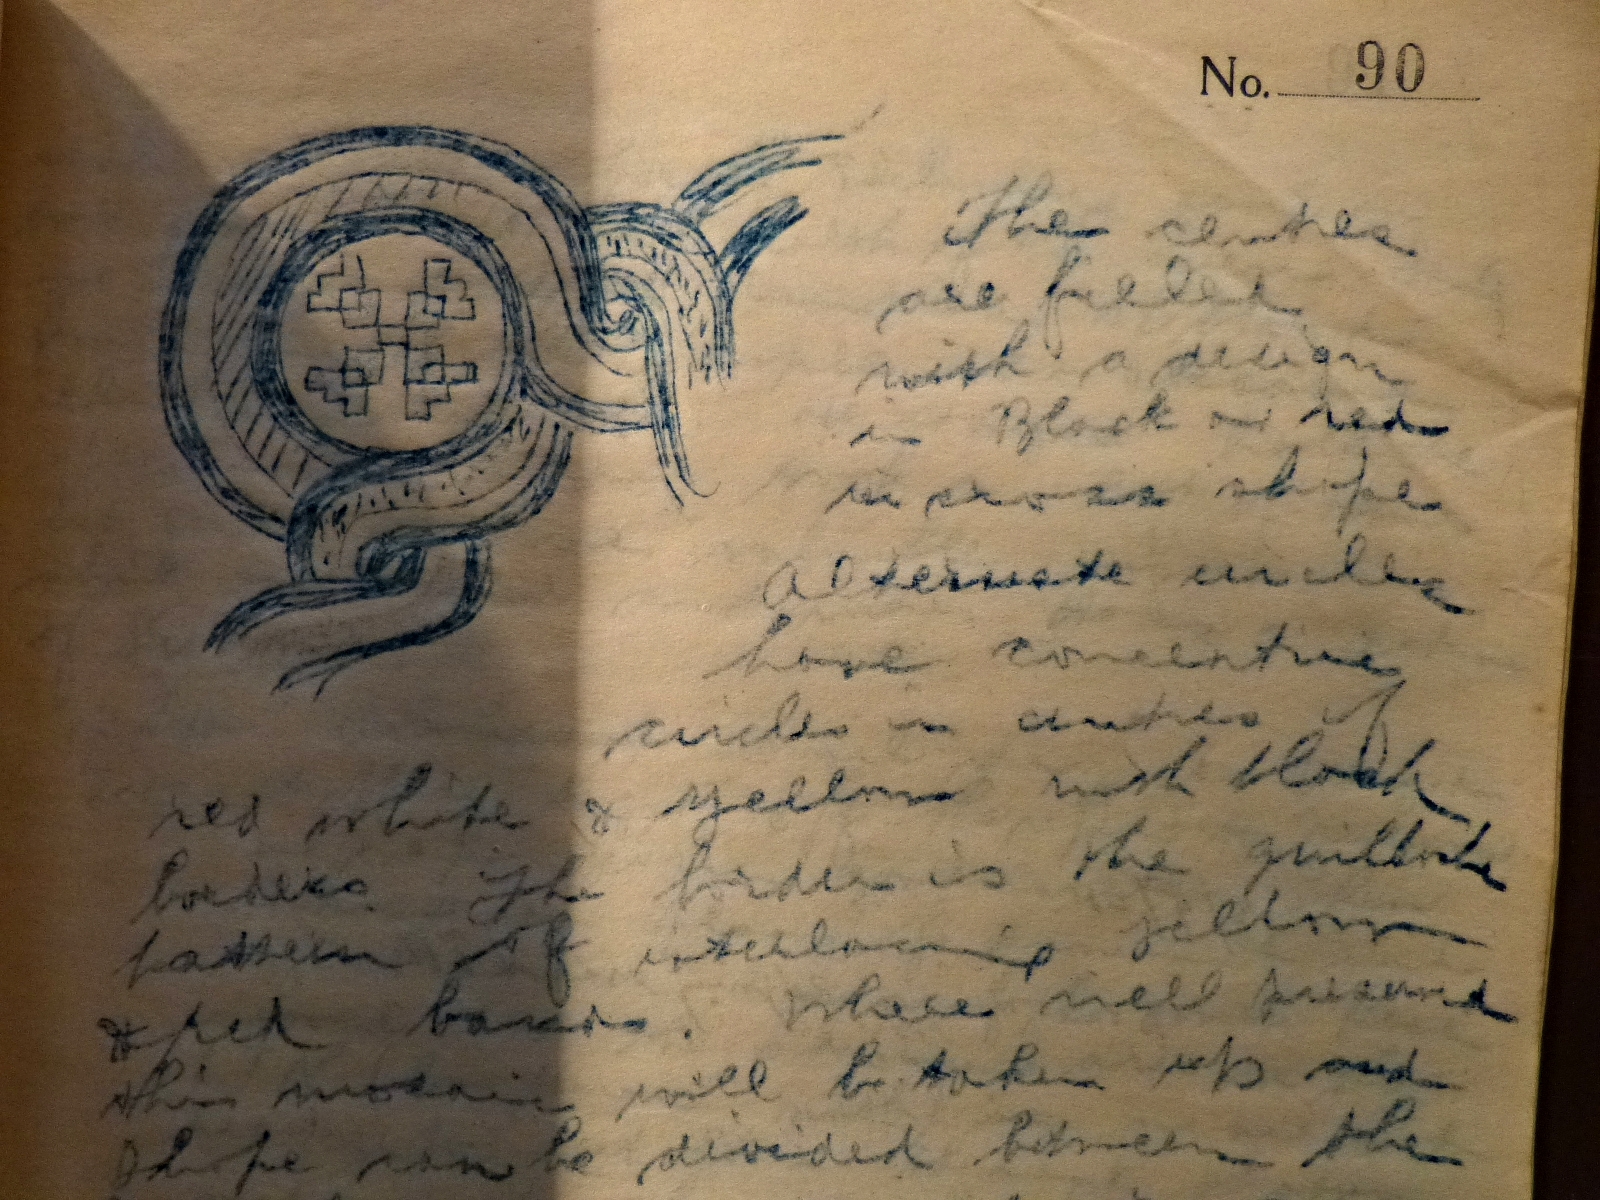 No. 90
The centres
are filled
with a design
in Black or red
in cross shape
Alternate circles
have concentric
circles in centres of
red white & yellow with black
borders. The border is the guilloche
pattern of interlacing yellow
& red bands. Where well preserved
this mosaic will be taken up and
I hope can be divided between the